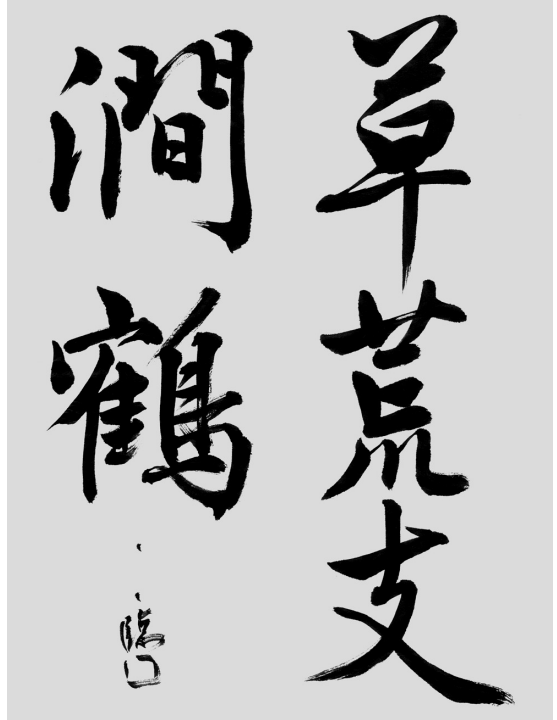 草荒支
澗鶴
臨